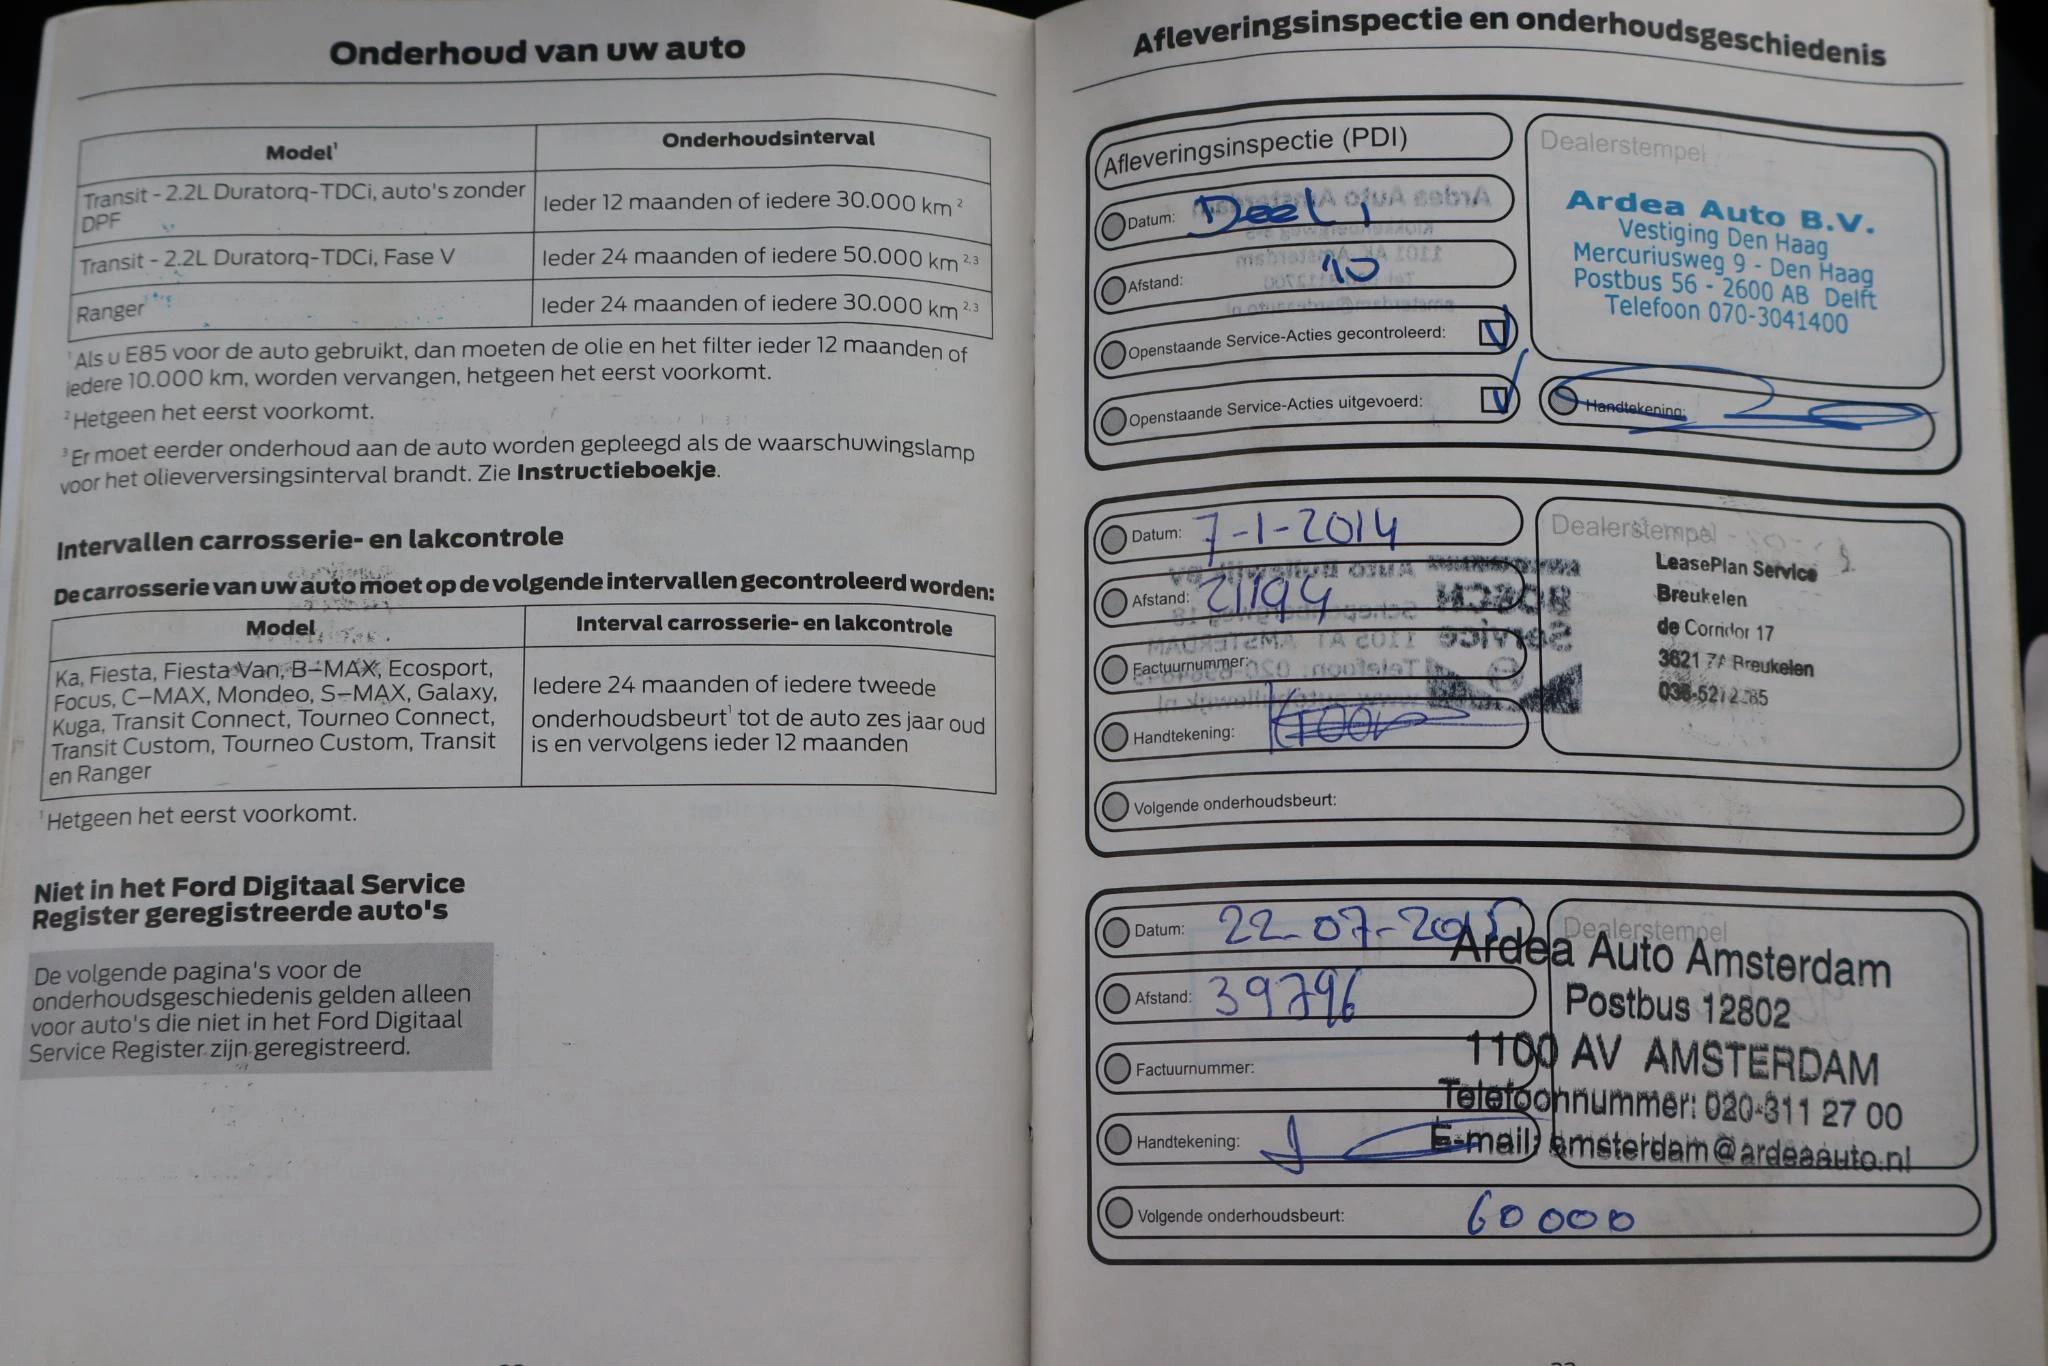 Onderhoud van uw auto
Model¹ Onderhoudsinterval
Transit - 2.2L Duratorq-TDCi, auto's zonder DPF Ieder 12 maanden of iedere 30.000 km ²
Transit - 2.2L Duratorq-TDCi, Fase V Ieder 24 maanden of iedere 50.000 km ²,³
Ranger Ieder 24 maanden of iedere 30.000 km ²,³
¹Als u E85 voor de auto gebruikt, dan moeten de olie en het filter ieder 12 maanden of
iedere 10.000 km, worden vervangen, hetgeen het eerst voorkomt.
²Hetgeen het eerst voorkomt.
³Er moet eerder onderhoud aan de auto worden gepleegd als de waarschuwingslamp
voor het olieverversingsinterval brandt. Zie Instructieboekje.
Intervallen carrosserie- en lakcontrole
De carrosserie van uw auto moet op de volgende intervallen gecontroleerd worden:
Model Interval carrosserie- en lakcontrole
Ka, Fiesta, Fiesta Van, B-MAX, Ecosport,
Focus, C-MAX, Mondeo, S-MAX, Galaxy,
Kuga, Transit Connect, Tourneo Connect,
Transit Custom, Tourneo Custom, Transit
en Ranger
Iedere 24 maanden of iedere tweede
onderhoudsbeurt¹ tot de auto zes jaar oud
is en vervolgens ieder 12 maanden
¹Hetgeen het eerst voorkomt.
Niet in het Ford Digitaal Service
Register geregistreerde auto's
De volgende pagina's voor de
onderhoudsgeschiedenis gelden alleen
voor auto's die niet in het Ford Digitaal
Service Register zijn geregistreerd.
Afleveringsinspectie en onderhoudsgeschiedenis
Afleveringsinspectie (PDI)
Datum:
Afstand: 10
Openstaande Service-Acties gecontroleerd:
Openstaande Service-Acties uitgevoerd:
Dealerstempel
Ardea Auto B.V.
Vestiging Den Haag
Mercuriusweg 9 - Den Haag
Postbus 56 - 2600 AB Delft
Telefoon 070-3041400
Handtekening:
Datum: 7-1-2014
Afstand: 21194
Factuurnummer:
Handtekening:
Volgende onderhoudsbeurt:
Dealerstempel
LeasePlan Service
Breukelen
de Corridor 17
3621 Breukelen
Datum: 22-07-2015
Afstand: 39796
Factuurnummer:
Handtekening:
Volgende onderhoudsbeurt: 60000
Dealerstempel
Ardea Auto Amsterdam
Postbus 12802
1100 AV AMSTERDAM
Telefoonnummer: 020-311 27 00
E-mail: amsterdam@ardeaauto.nl